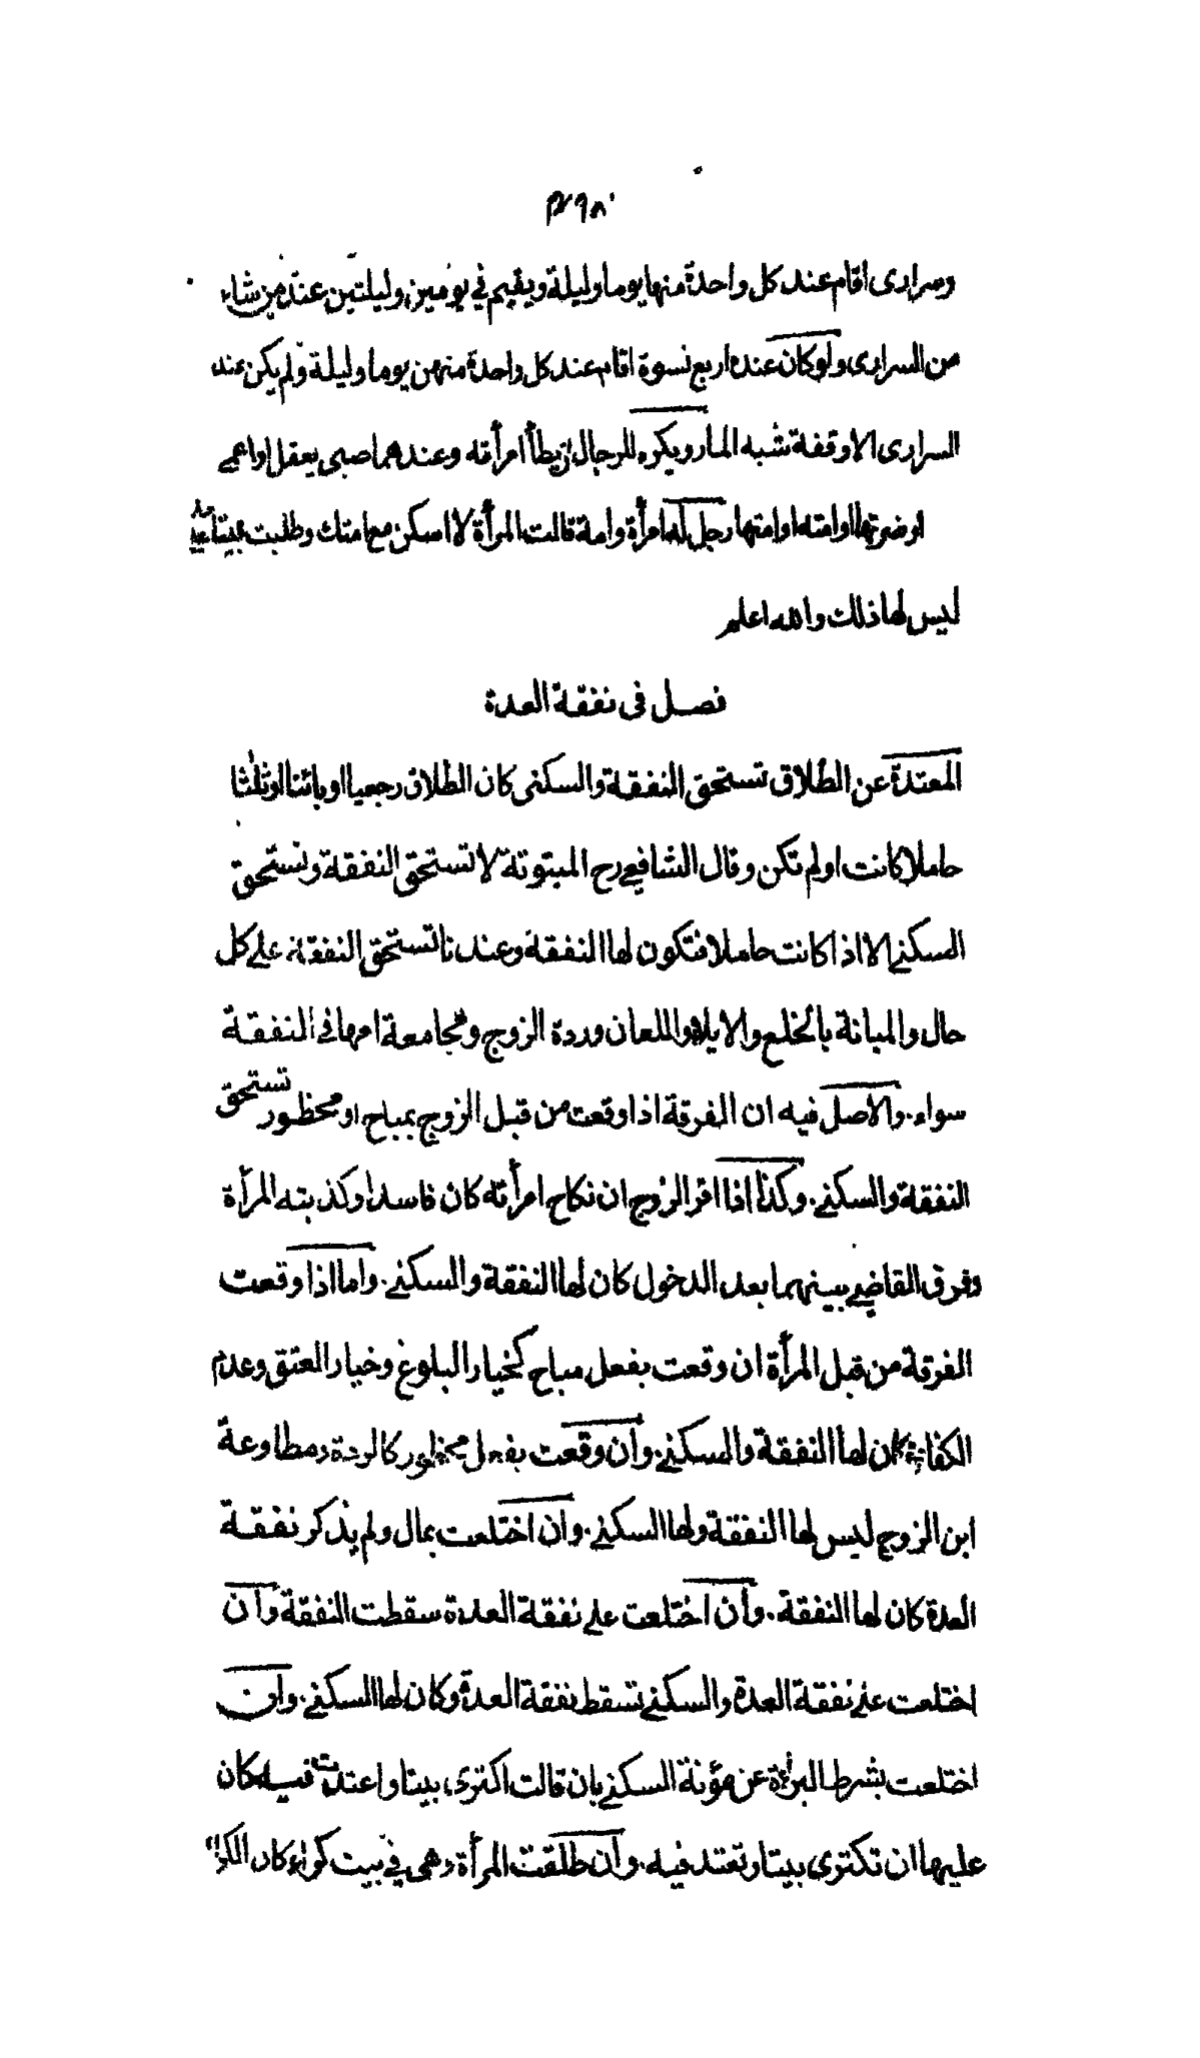 ٤٩٨
وسرارى اقام عند كل واحدة منها يوما وليلة ويقيم في يومين وليلتين عند من شاء
من السرارى ولو كان عنده اربع نسوة اقام عند كل واحدة منهن يوما وليلة ولم يكن عند
السرارى الا وقفة شبه المار ويكره للرجال ان يطأ امرأته وعندهما صبى يعقل او اعمى
او ضرتها او امته او امتها رجل له امرأة وامة قالت المرأة لا اسكن مع امتك وطلبت بيتا
ليس لها ذلك والله اعلم
فصل فى نفقة العدة
المعتدة عن الطلاق تستحق النفقة والسكنى كان الطلاق رجعيا او بائنا او ثلثا
حاملا كانت او لم تكن وقال الشافعى رح المبتوتة لا تستحق النفقة وتستحق
السكنى الا اذا كانت حاملا فتكون لها النفقة وعندنا تستحق النفقة على كل
حال والمبانة بالخلع والايلاء واللعان وردة الزوج ومجامعة امها فى النفقة
سواء. والاصل فيه ان الفرقة اذا وقعت من قبل الزوج بمباح او محظور تستحق
النفقة والسكنى. وكذا اذا اقر الزوج ان نكاح امرأته كان فاسدا وكذبته المرأة
وفرق القاضى بينهما بعد الدخول كان لها النفقة والسكنى. واما اذا وقعت
الفرقة من قبل المرأة ان وقعت بفعل مباح كخيار البلوغ وخيار العتق وعدم
الكفائة كان لها النفقة والسكنى. وان وقعت بفعل محظور كالردة ومطاوعة
ابن الزوج ليس لها النفقة ولها السكنى. وان اختلعت بمال ولم يذكر نفقة
العدة كان لها النفقة. وان اختلعت على نفقة العدة سقطت النفقة وان
اختلعت على نفقة العدة والسكنى تسقط نفقة العدة وكان لها السكنى. وان
اختلعت بشرط البرأة عن مؤنة السكنى بان قالت اكترى بيتا واعتدت فيه كان
عليها ان تكترى بيتا وتعتد فيه. وان طلقت المرأة وهى في بيت كراء كان الكراء